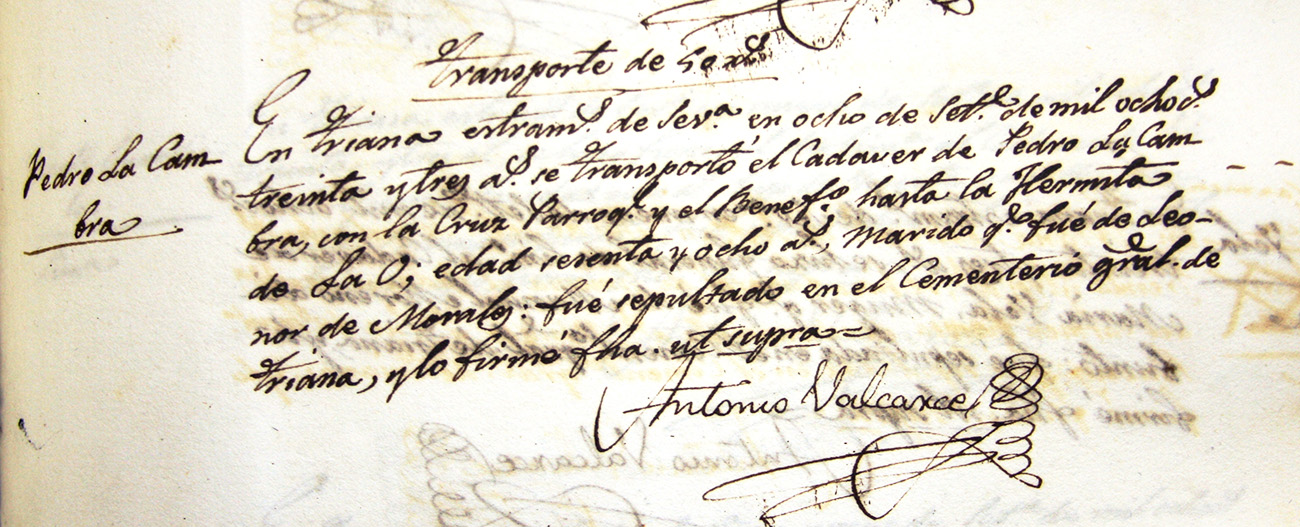 transporte de 50 rs
Pedro La Cam
bra
En triana extram.s de Sev.a en ocho de Set.e de mil ochoc.s
treinta y tres a.s se transportó el Cadaver de Pedro La Cam
bra, con la Cruz Parroq.l y el Benef.o hasta la Hermita
de La O; edad sesenta y ocho a.s, Marido q.e fué de Leo-
nor de Morales: fué sepultado en el Cementerio gral. de
triana, y lo firmé fha. ut supra =
Antonio Valcarcel